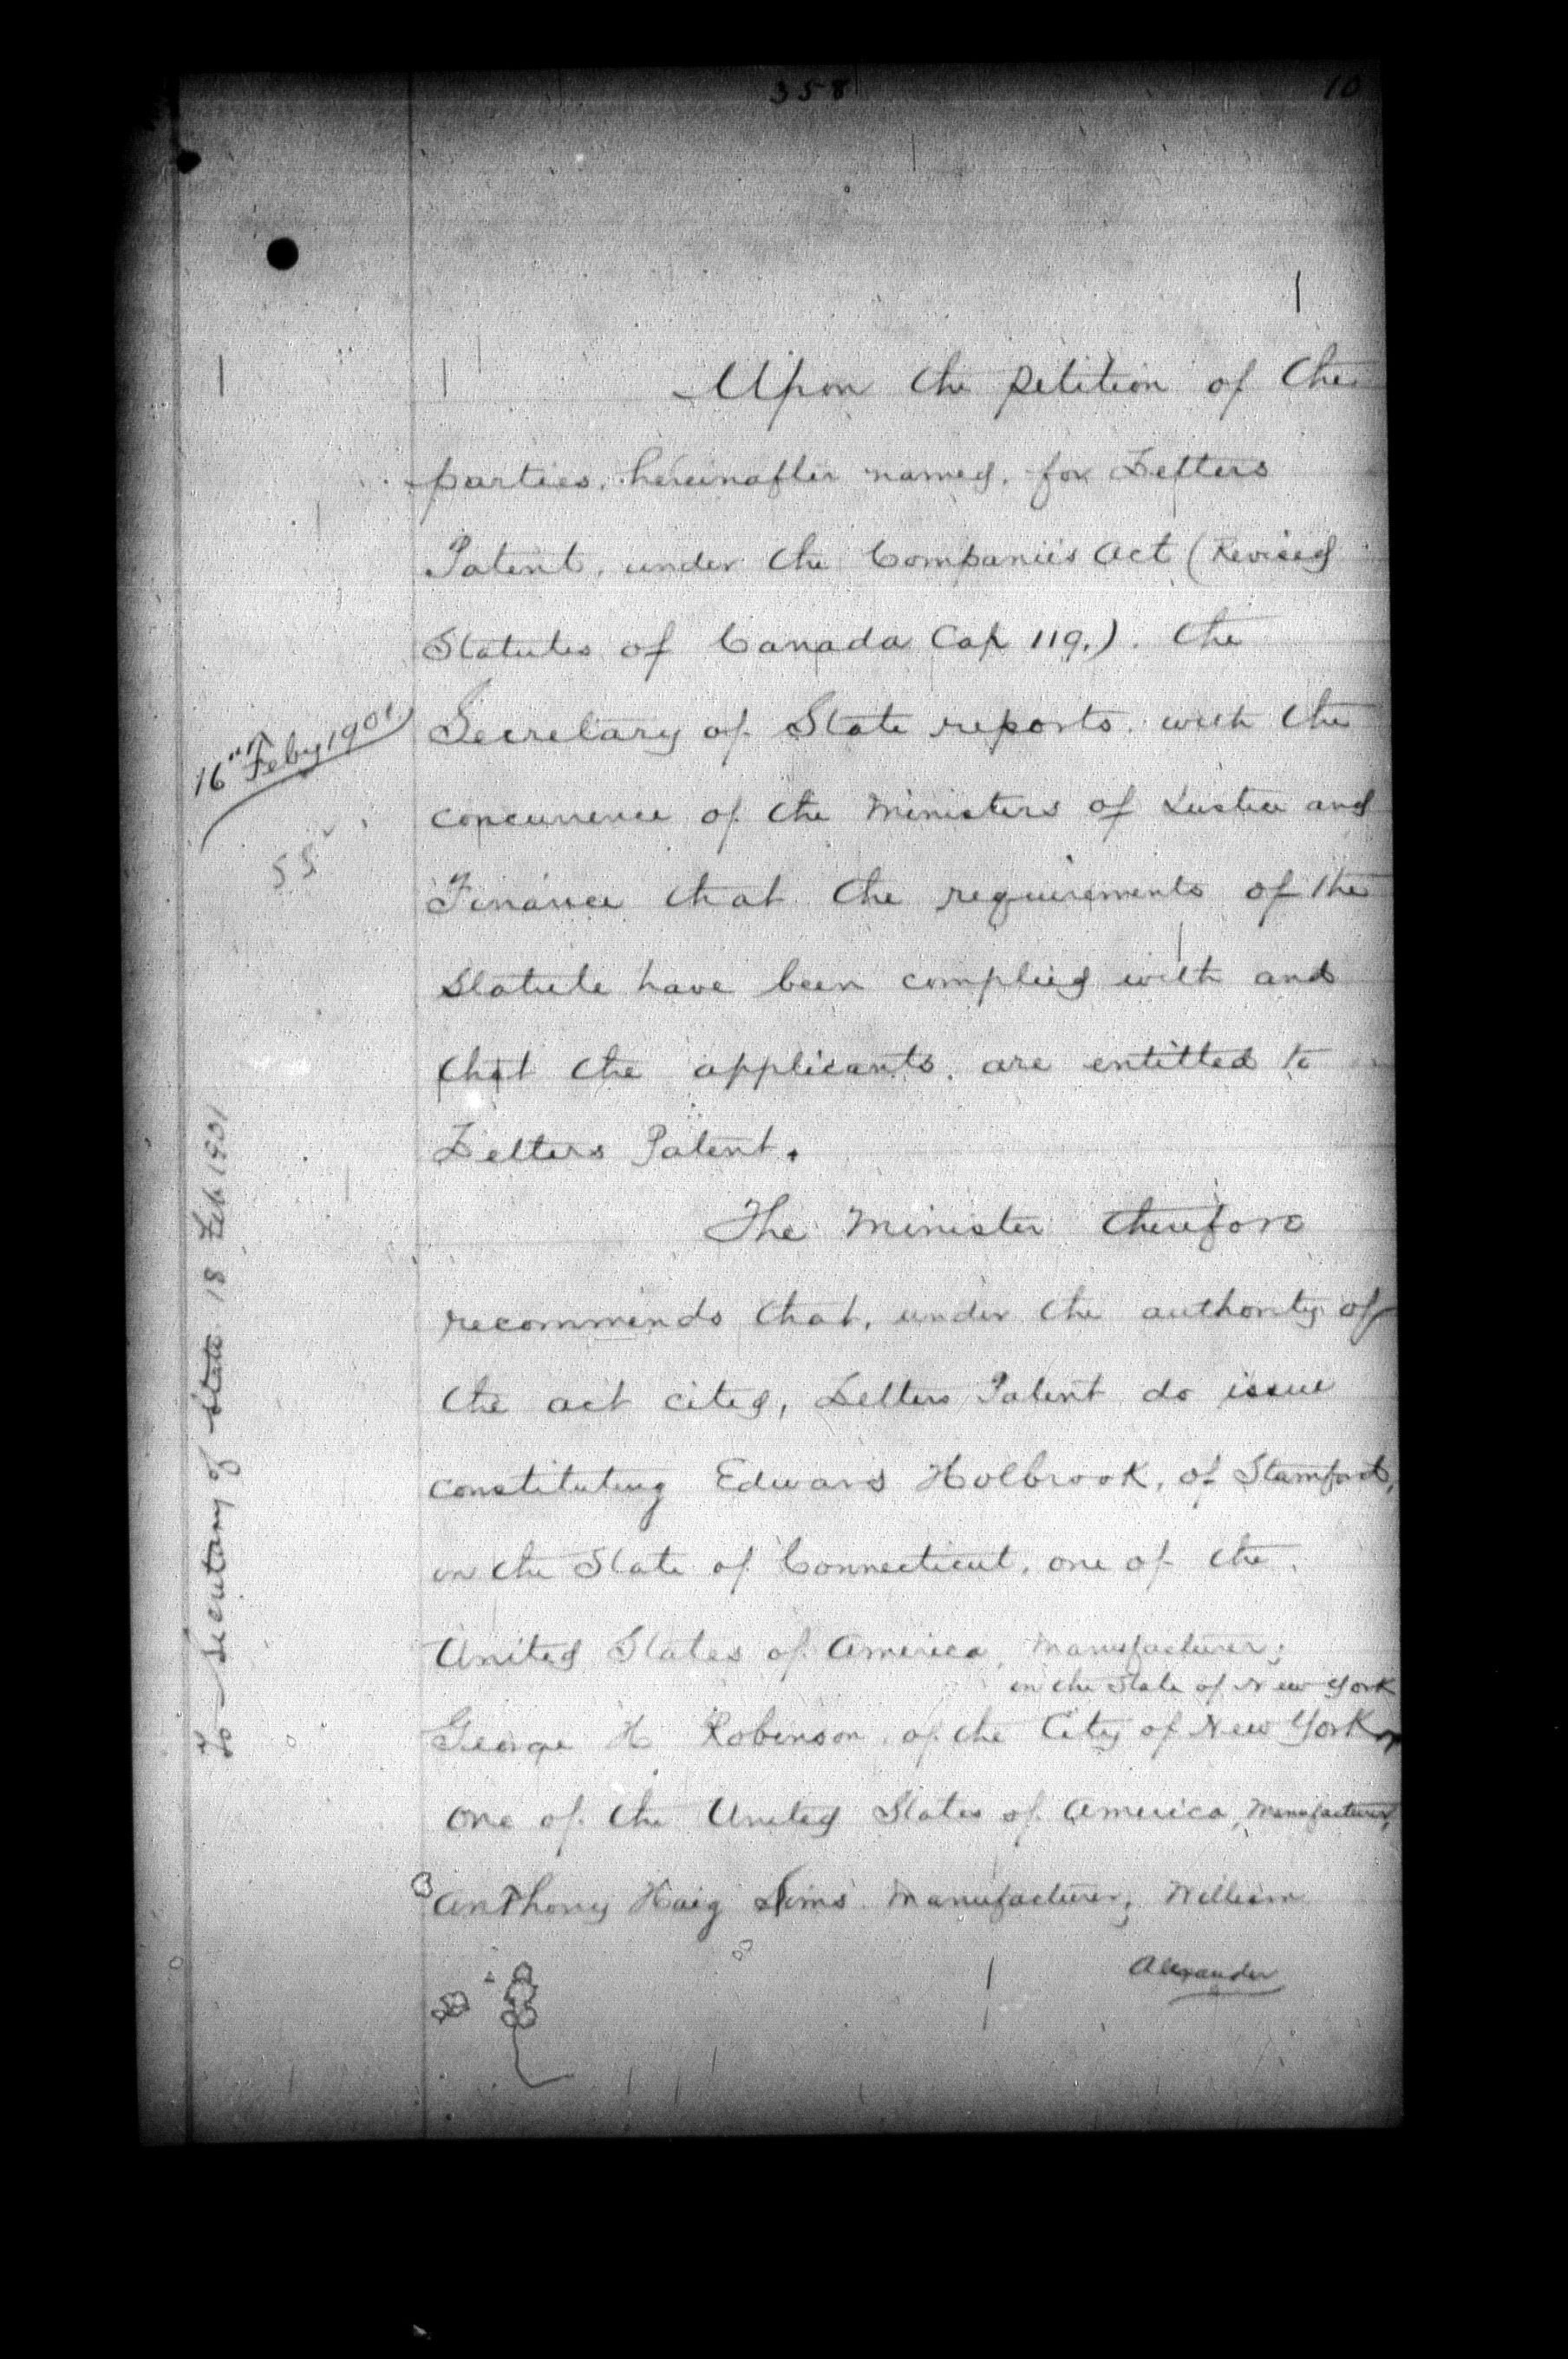 358
10
Upon the petition of the
parties, hereinafter named, for Letters
Patent, under the Companies Act (Revised
Statutes of Canada Cap 119.). the
Secretary of State reports. with the
16th Feby 1901
concurrence of the Ministers of Justice and
Finance that the requirements of the
Statute have been complied with and
that the applicants. are entitled to
Letters Patent.
The Minister therefore
recommends that, under the authority of
the act cited, Letters Patent do issue
constituting Edward Holbrook, of Stamford,
in the State of Connecticut, one of the
United States of America, Manufacturer;
in the State of New York
George H Robinson of the City of New York
one of the United States of America, Manufacturer,
Anthony Haig Sims Manufacturer; William
Alexander
To Secretary of State 18 Feb 1901